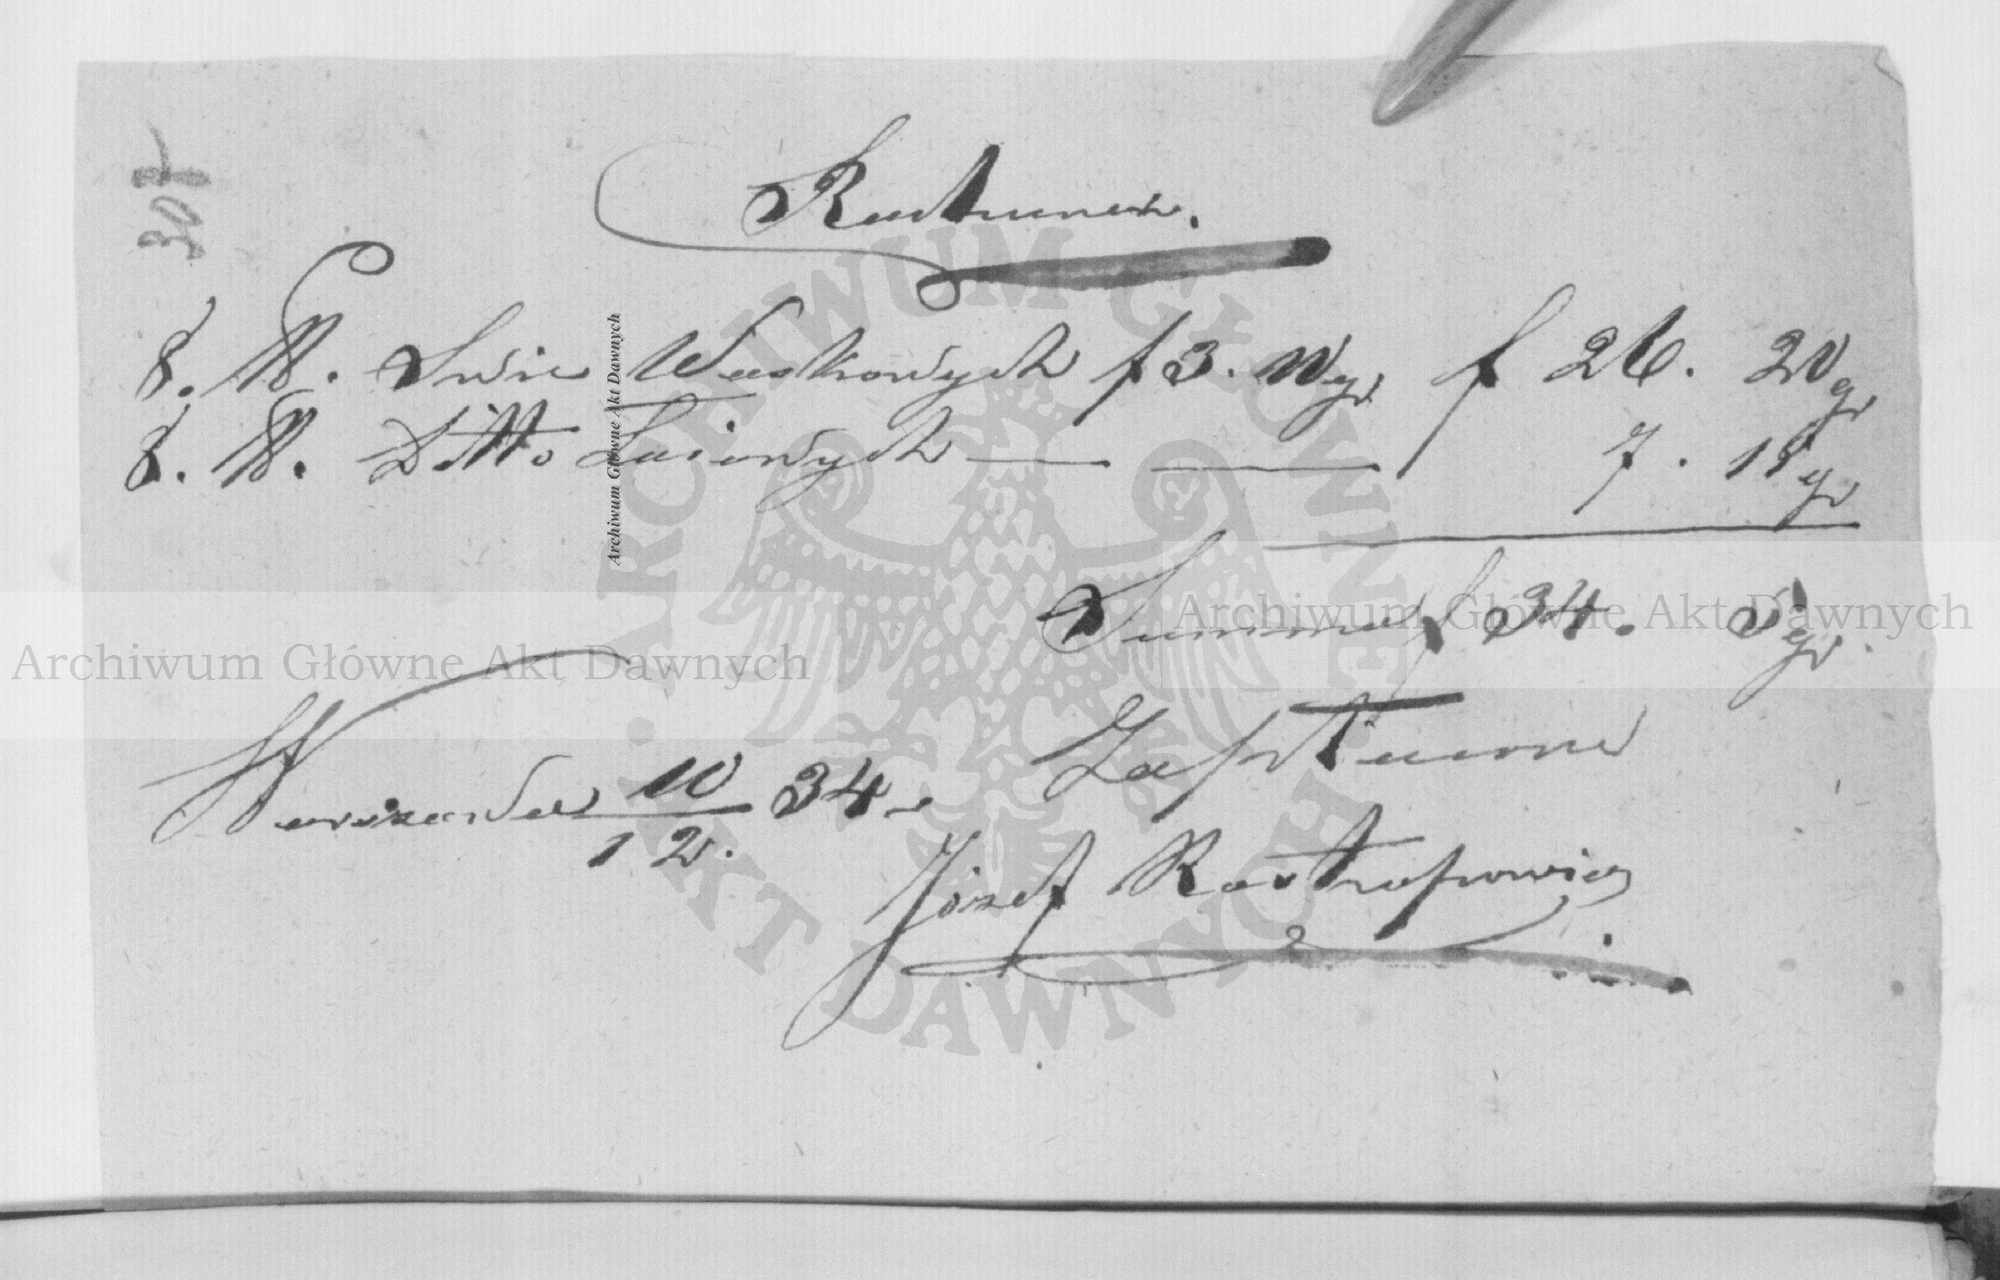 307
Rachunek.
8. ℔. Świe Woskowych f 3. 10 gr f 26. 20 gr
8. ℔. Ditto Loiowych — — 7. 15 gr
Summa f 34. 5 gr.
Warszawa 10/12. 34
Zapłacone
Józef Rostropowicz
ARCHIWUM GŁÓWNE AKT DAWNYCH
Archiwum Główne Akt Dawnych
Archiwum Główne Akt Dawnych
Archiwum Główne Akt Dawnych